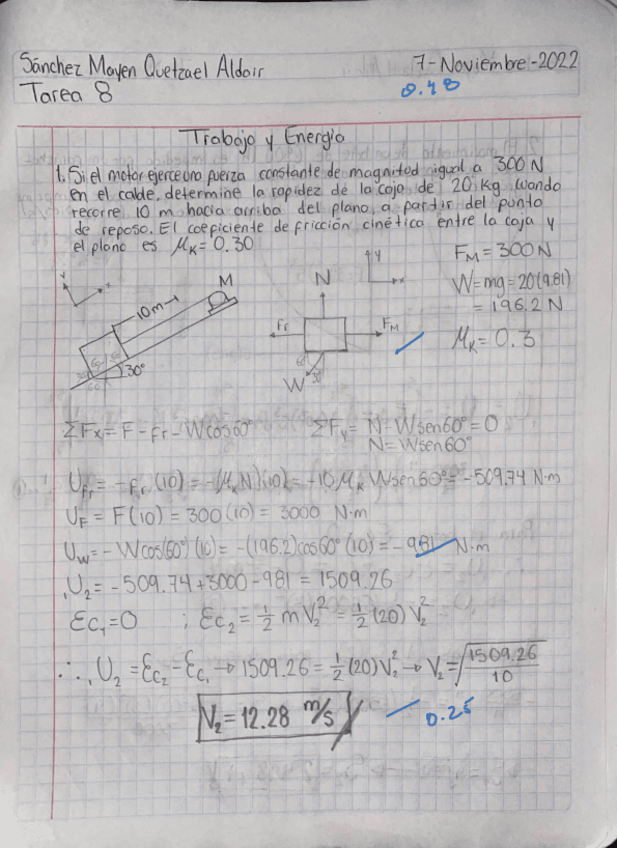 Sánchez Mayen Quetzael Aldair 7-Noviembre-2022
Tarea 8 0.48
Trabajo y Energía
1. Si el motor ejerce una fuerza constante de magnitud igual a 300 N
en el cable, determine la rapidez de la caja de 20 Kg cuando
recorre 10 m hacia arriba del plano, a partir del punto
de reposo. El coeficiente de fricción cinética entre la caja y
el plano es μk = 0.30
FM = 300 N
W = mg = 20(9.81)
= 196.2 N
μk = 0.3
y x
10m
M
30°
60°
y
x
N
Fr
FM
60°
30°
W
ΣFx = F - fr - Wcos60° ΣFy = N - Wsen60° = 0
N = Wsen60°
Ufr = -fr (10) = -(μkN)(10) = -10 μk Wsen60° = -509.74 N·m
UF = F(10) = 300(10) = 3000 N·m
Uw = -Wcos(60°)(10) = -(196.2)cos60°(10) = -981 N·m
₁U₂ = -509.74 + 3000 - 981 = 1509.26
Ec₁ = 0 ; Ec₂ = 1/2 m V₂² = 1/2 (20) V₂²
∴ ₁U₂ = Ec₂ - Ec₁ → 1509.26 = 1/2 (20) V₂² → V₂ = √(1509.26/10)
V₂ = 12.28 m/s
0.25